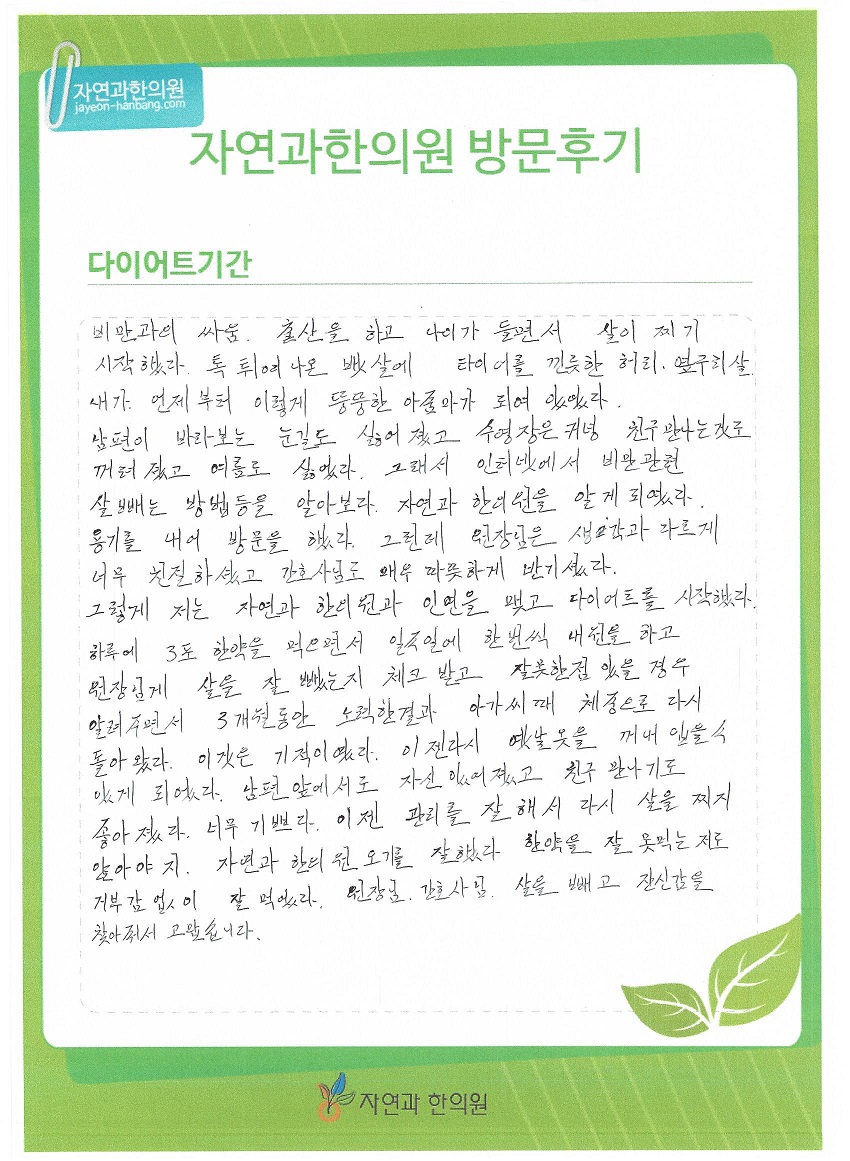 자연과한의원
jayeon-hanbang.com
자연과한의원 방문후기
다이어트기간
비만과의 싸움. 출산을 하고 나이가 들면서 살이 찌기
시작했다. 톡 튀여나온 뱃살에 타이어를 낀듯한 허리. 옆구리살
내가 언제부터 이렇게 뚱뚱한 아줌마가 되여 있었다.
남편이 바라보는 눈길도 싫어졌고 수영장은 커녕 친구만나는것도
꺼려졌고 여름도 싫었다. 그래서 인터넷에서 비만관련
살빼는 방법등을 알아보다. 자연과 한의원을 알게되였다.
용기를 내어 방문을 했다. 그런데 원장님은 생각과 다르게
너무 친절하셨고 간호사님도 매우 따뜻하게 반기셨다.
그렇게 저는 자연과 한의원과 인연을 맺고 다이어트를 시작했다.
하루에 3포 한약을 먹으면서 일주일에 한번씩 내원을 하고
원장님게 살을 잘 뺐는지 체크 받고 잘못한점 있을 경우
알려주면서 3개월동안 노력한결과 아가씨때 체중으로 다시
돌아왔다. 이것은 기적이였다. 이젠다시 옛날옷을 꺼내 입을수
있게 되었다. 남편앞에서도 자신있어졌고 친구 만나기도
좋아졌다. 너무 기쁘다. 이젠 관리를 잘해서 다시 살을 찌지
않아야지. 자연과 한의원 오기를 잘했다 한약을 잘 못먹는 저도
거부감 없이 잘 먹었다. 원장님. 간호사님. 살을 빼고 잔신감을
찾아줘서 고맙습니다.
자연과 한의원